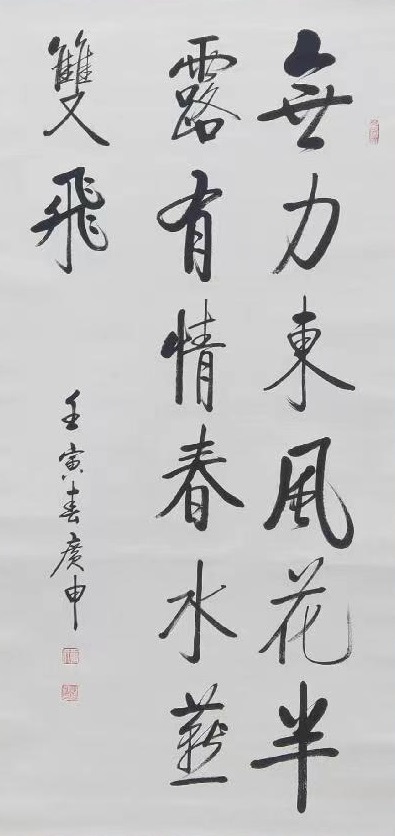 無力東風花半
露有情春水燕
雙飛
壬寅春廣申